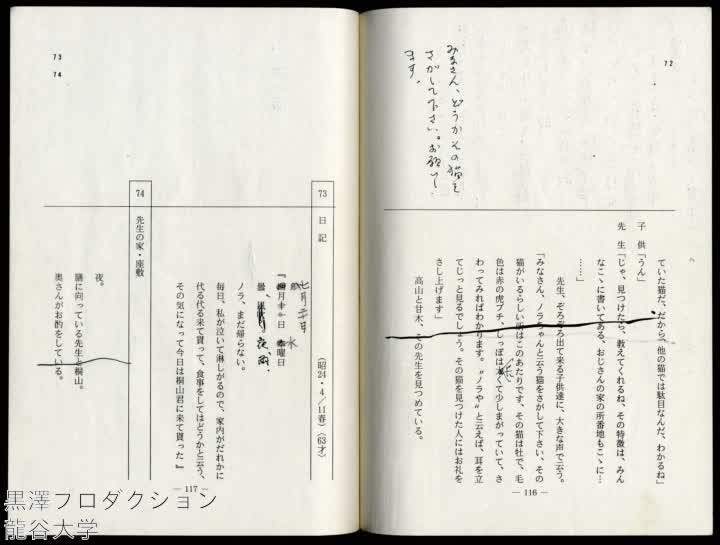 72
みなさん、どうかその猫を
さがして下さい。お願いし
ます。
ていた猫だ、だから、他の猫では駄目なんだ、わかるね」
子供「うん」
先生「じゃ、見つけたら、教えてくれるね、その特徴は、みん
なこゝに書いてある、おじさんの家の所番地もこゝに…
……」
先生、ぞろぞろ出て来る子供達に、大きな声で云う。
「みなさん、ノラちゃんと云う猫をさがして下さい、その
猫がいるらしい所はこのあたりです、その猫は牡で、毛
色は赤の虎ブチ、しっぽは太くて少しまがっていて、さ
わってみればわかります。〝ノラや〟と云えば、耳を立
てじっと見るでしょう。その猫を見つけた人にはお礼を
さし上げます」
高山と甘木、その先生を見つめている。
— 116 —
73
74
73 日記
(昭24・4/11春)(63才)
七月二日 水
曜日
曇、夜雨、
ノラ、まだ帰らない。
毎日、私が泣いて淋しがるので、家内がだれかに
代る代る来て貰って、食事をしてはどうかと云う、
その気になって今日は桐山君に来て貰った』
74 先生の家・座敷
夜。
膳に向っている先生と桐山。
奥さんがお酌をしている。
— 117 —
黒澤プロダクション
龍谷大学